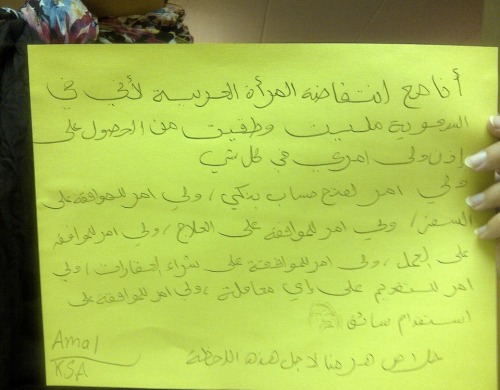 أنا مع انتفاضة المرأة العربية لأني في
السعودية مليت وطفيت من الحصول على
إذن ولي امري في كل شي
ولي امر لفتح حساب بنكي / ولي امر للموافقة على
السفر / ولي امر للموافقة على العلاج ، ولي امر للموافقة
على العمل ، ولي امر للموافقة على شراء العقارات / ولي
امر للتقديم على أي معاملة ، ولي امر للموافقة على
استقدام سائق
خلاص هرمنا لاجل هذه اللحظة
Amal
KSA